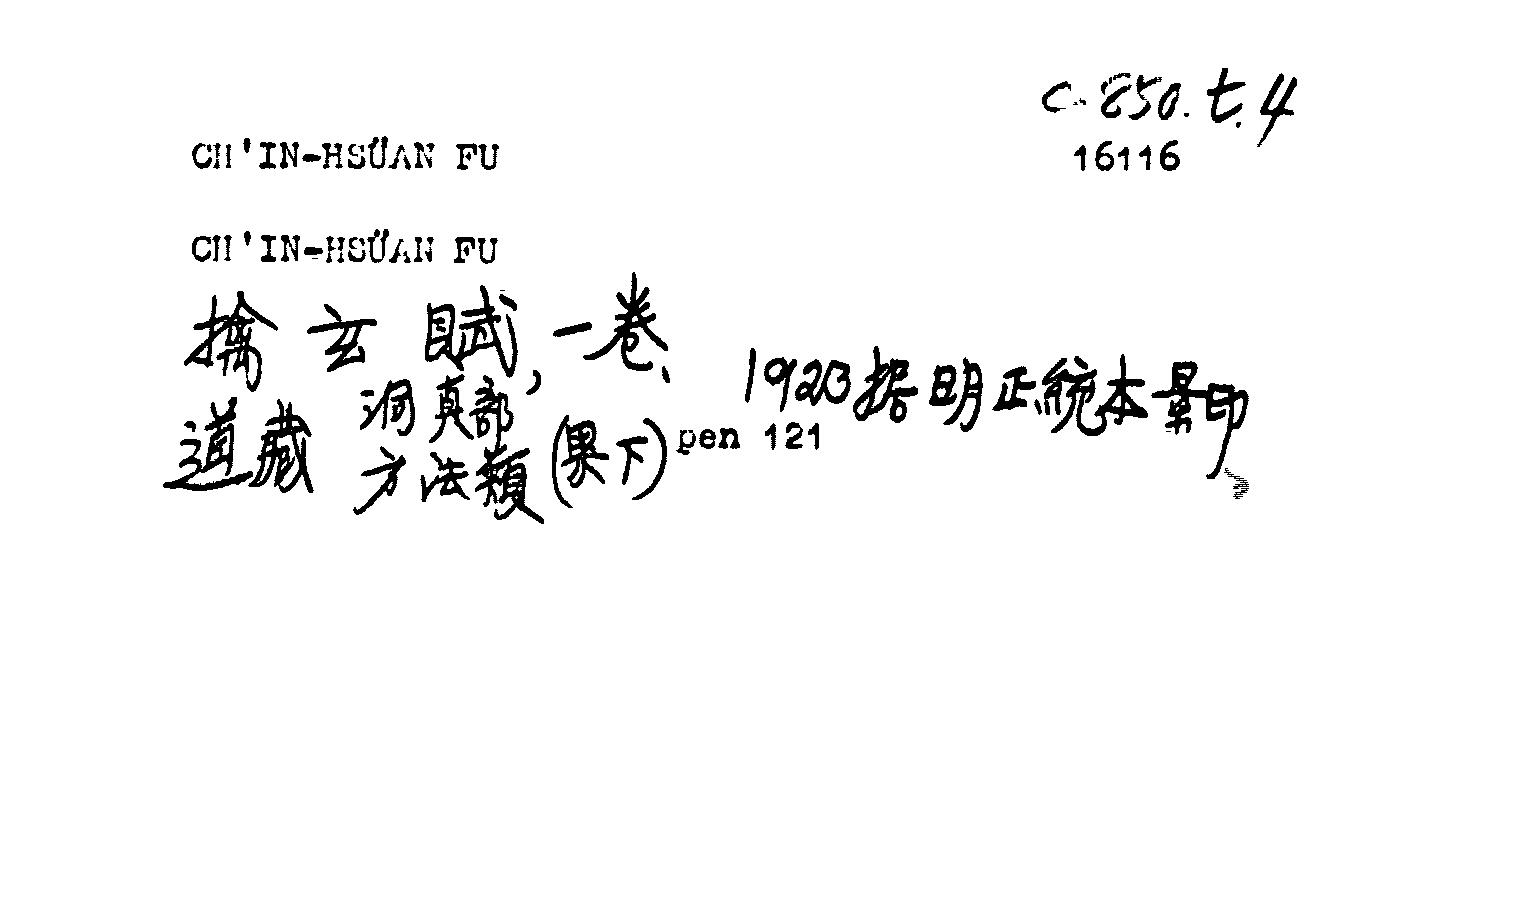 C.850.t.4
16116
CH'IN-HSÜAN FU
CH'IN-HSÜAN FU
擒玄賦,一卷、
1923据明正統本景印
道藏 洞真部 方法類 (果下) pen 121